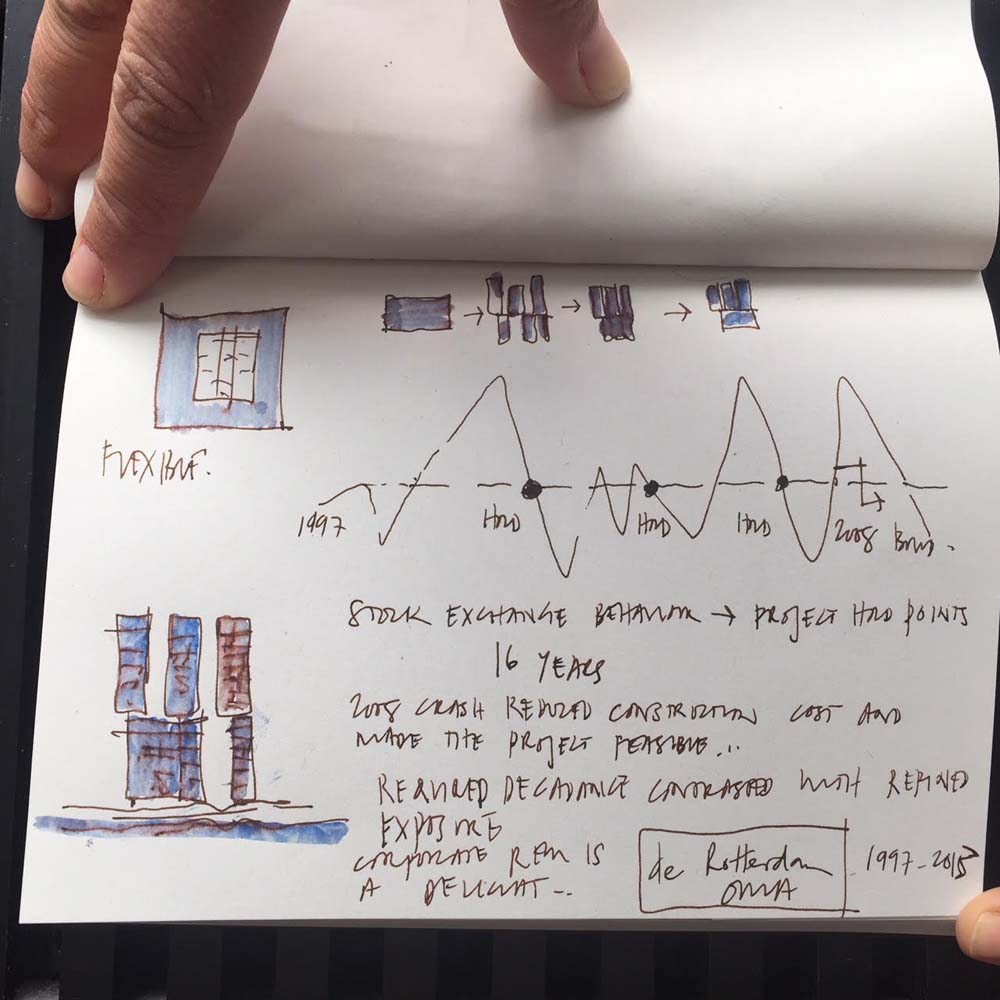 FLEXIBLE.
1997
HOLD
HOLD
HOLD
2008 BUILD.
STOCK EXCHANGE BEHAVIOR → PROJECT HOLD POINTS
16 YEARS
2008 CRASH REDUCED CONSTRUCTION COST AND
MADE THE PROJECT FEASIBLE...
DECADANCE CONTRASTED WITH REFINED
EXPOSURE
CORPORATE REM IS
A DELIGHT...
de Rotterdam
OMA
1997-2013